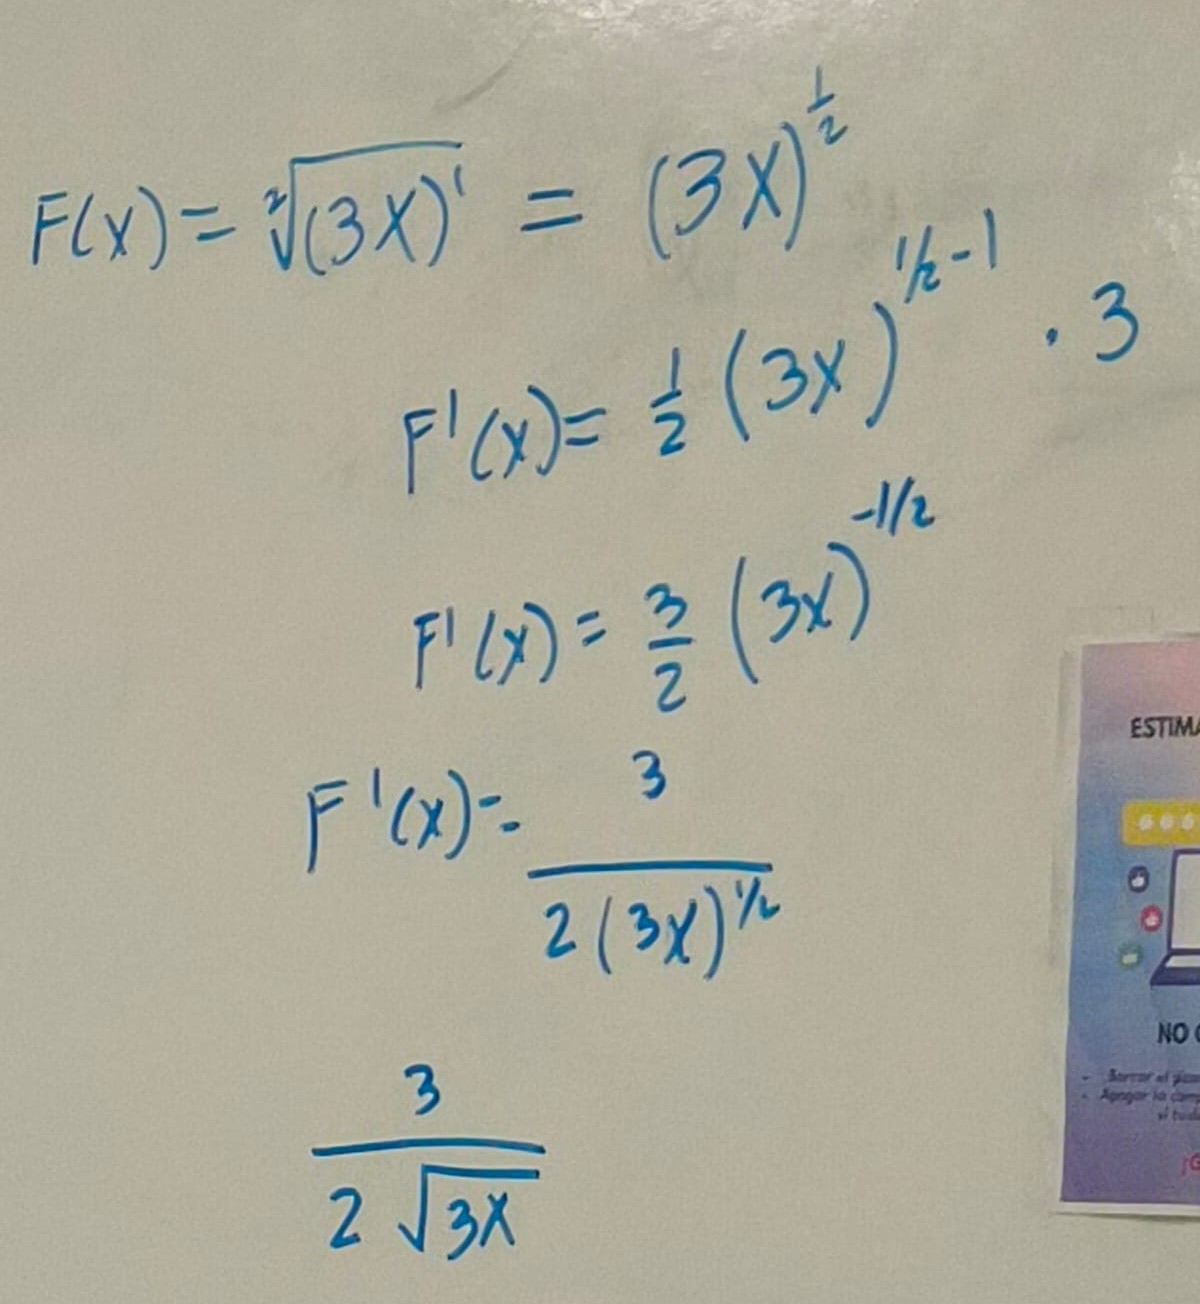 F(x) = ²√(3x)¹ = (3x)^½
F'(x) = ½ (3x)^½-1 · 3
F'(x) = 3/2 (3x)^-1/2
F'(x) = 3 / 2(3x)^½
3 / 2√3x
ESTIMA
NO
Borrar el
Apagar la